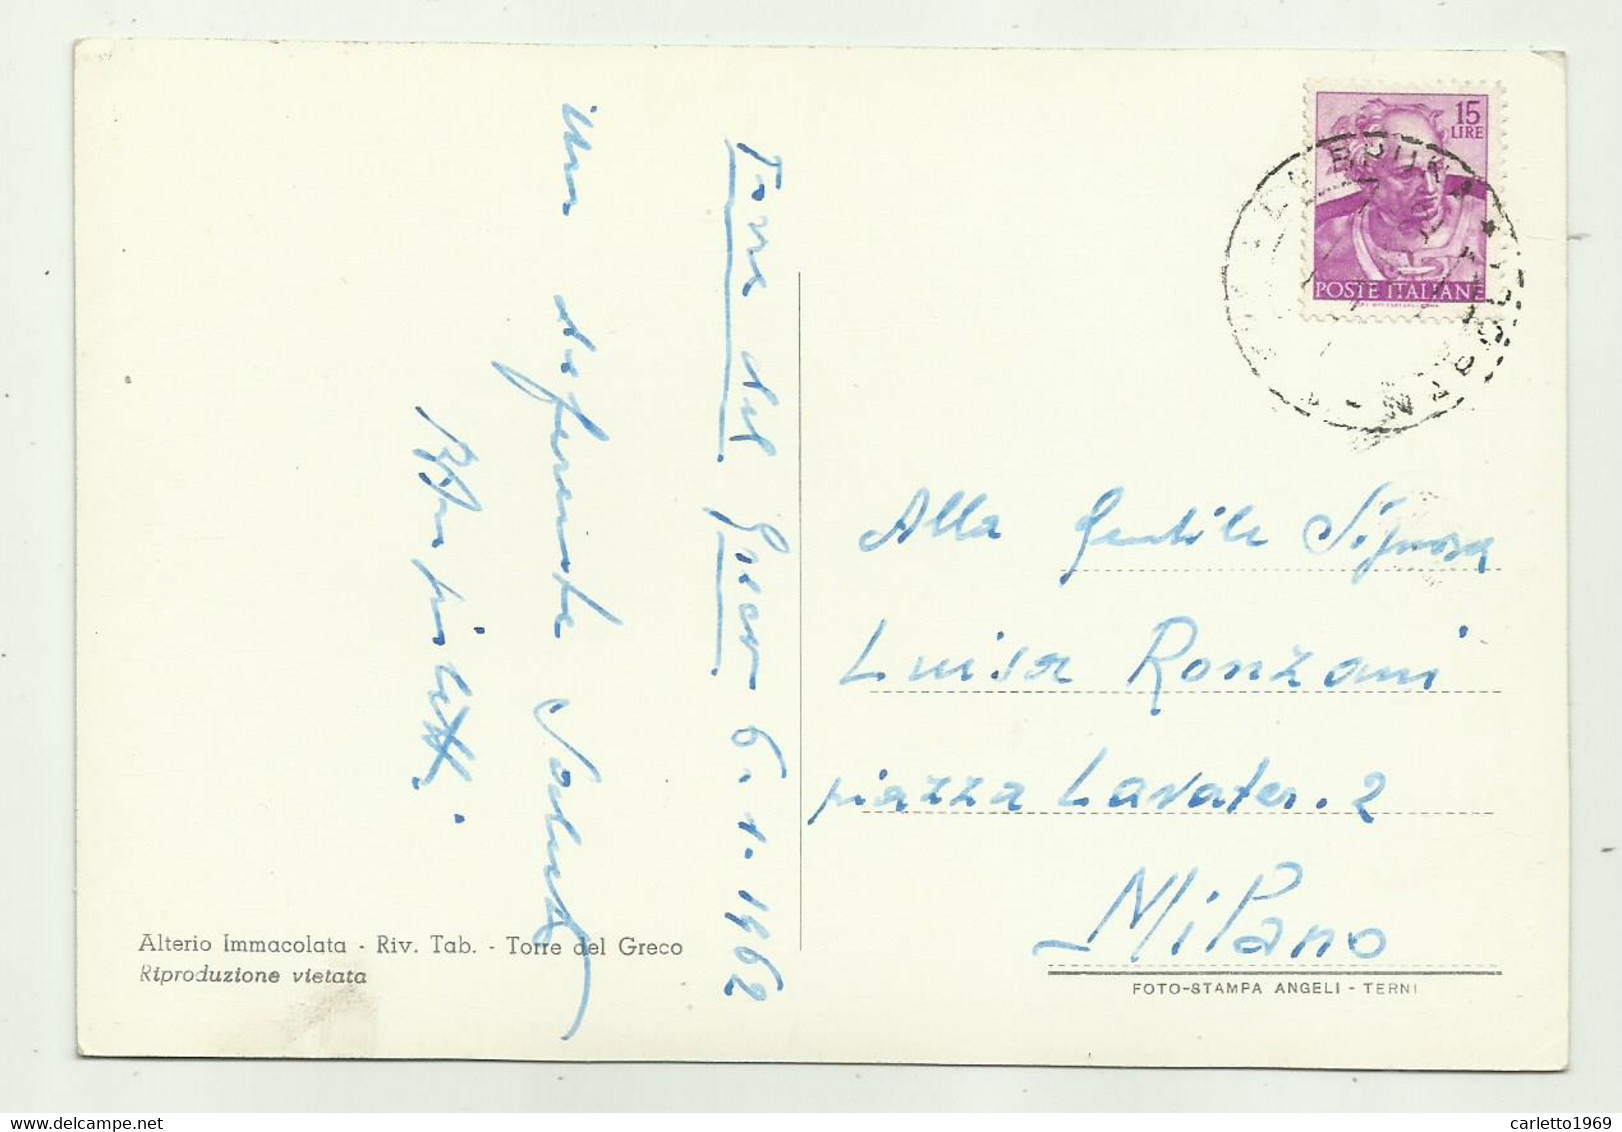 Torre del Greco 6.1.1962
un deferente saluto
Alla Gentile Signora
Luisa Ronzani
piazza Lavater. 2
Milano
15
LIRE
POSTE ITALIANE
Alterio Immacolata - Riv. Tab. - Torre del Greco
Riproduzione vietata
FOTO-STAMPA ANGELI - TERNI
carletto1969